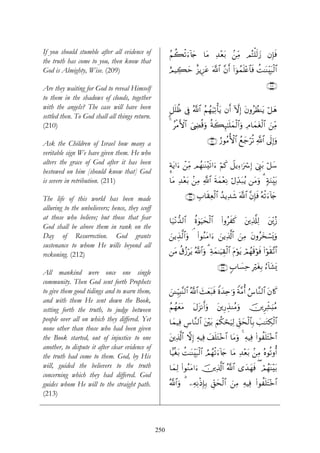 If you should stumble after all evidence of
the truth had come to you, then know that
God is Almighty, Wise. (209)
Are they waiting for God to reveal Himself
to them in the shadows of clouds, together
with the angels? The case will have been
settled then. To God shall all things return.
(210)
Ask the Children of Israel how many a
veritable sign We have given them. He who
alters the grace of God after it has been
bestowed on him [should know that] God
is severe in retribution. (211)
The life of this world has been made
alluring to the unbelievers; hence, they scoff
at those who believe; but those that fear
God shall be above them in rank on the
Day of Resurrection. God grants
sustenance to whom He wills beyond all
reckoning. (212)
All mankind were once one single
community. Then God sent forth Prophets
to give them good tidings and to warn them,
and with them He sent down the Book,
setting forth the truth, to judge between
people over all on which they differed. Yet
none other than those who had been given
the Book started, out of injustice to one
another, to dispute it after clear evidence of
the truth had come to them. God, by His
will, guided the believers to the truth
concerning which they had differed. God
guides whom He will to the straight path.
(213)
فَإِن زَلَلْتُم مِّنۢ بَعْدِ مَا جَآءَتْكُمُ
ٱلْبَيِّنَـٰتُ فَٱعْلَمُوٓا۟ أَنَّ ٱللَّهَ عَزِيزٌ حَكِيمٌ
﴿٢٠٩﴾
هَلْ يَنظُرُونَ إِلَّآ أَن يَأْتِيَهُمُ ٱللَّهُ فِى ظُلَلٍ
مِّنَ ٱلْغَمَامِ وَٱلْمَلَـٰٓئِكَةُ وَقُضِىَ ٱلْأَمْرُ ۚ
وَإِلَى ٱللَّهِ تُرْجَعُ ٱلْأُمُورُ ﴿٢١٠﴾
سَلْ بَنِىٓ إِسْرَٰٓءِيلَ كَمْ ءَاتَيْنَـٰهُم مِّنْ ءَايَةٍۭ
بَيِّنَةٍ ۗ وَمَن يُبَدِّلْ نِعْمَةَ ٱللَّهِ مِنۢ بَعْدِ مَا
جَآءَتْهُ فَإِنَّ ٱللَّهَ شَدِيدُ ٱلْعِقَابِ ﴿٢١١﴾
زُيِّنَ لِلَّذِينَ كَفَرُوا۟ ٱلْحَيَوٰةُ ٱلدُّنْيَا
وَيَسْخَرُونَ مِنَ ٱلَّذِينَ ءَامَنُوا۟ ۘ وَٱلَّذِينَ
ٱتَّقَوْا۟ فَوْقَهُمْ يَوْمَ ٱلْقِيَـٰمَةِ ۗ وَٱللَّهُ يَرْزُقُ مَن
يَشَآءُ بِغَيْرِ حِسَابٍ ﴿٢١٢﴾
كَانَ ٱلنَّاسُ أُمَّةً وَٰحِدَةً فَبَعَثَ ٱللَّهُ ٱلنَّبِيِّـۧنَ
مُبَشِّرِينَ وَمُنذِرِينَ وَأَنزَلَ مَعَهُمُ
ٱلْكِتَـٰبَ بِٱلْحَقِّ لِيَحْكُمَ بَيْنَ ٱلنَّاسِ فِيمَا
ٱخْتَلَفُوا۟ فِيهِ ۚ وَمَا ٱخْتَلَفَ فِيهِ إِلَّا ٱلَّذِينَ
أُوتُوهُ مِنۢ بَعْدِ مَا جَآءَتْهُمُ ٱلْبَيِّنَـٰتُ بَغْيًۢا
بَيْنَهُمْ ۖ فَهَدَى ٱللَّهُ ٱلَّذِينَ ءَامَنُوا۟ لِمَا
ٱخْتَلَفُوا۟ فِيهِ مِنَ ٱلْحَقِّ بِإِذْنِهِۦ ۗ وَٱللَّهُ
250